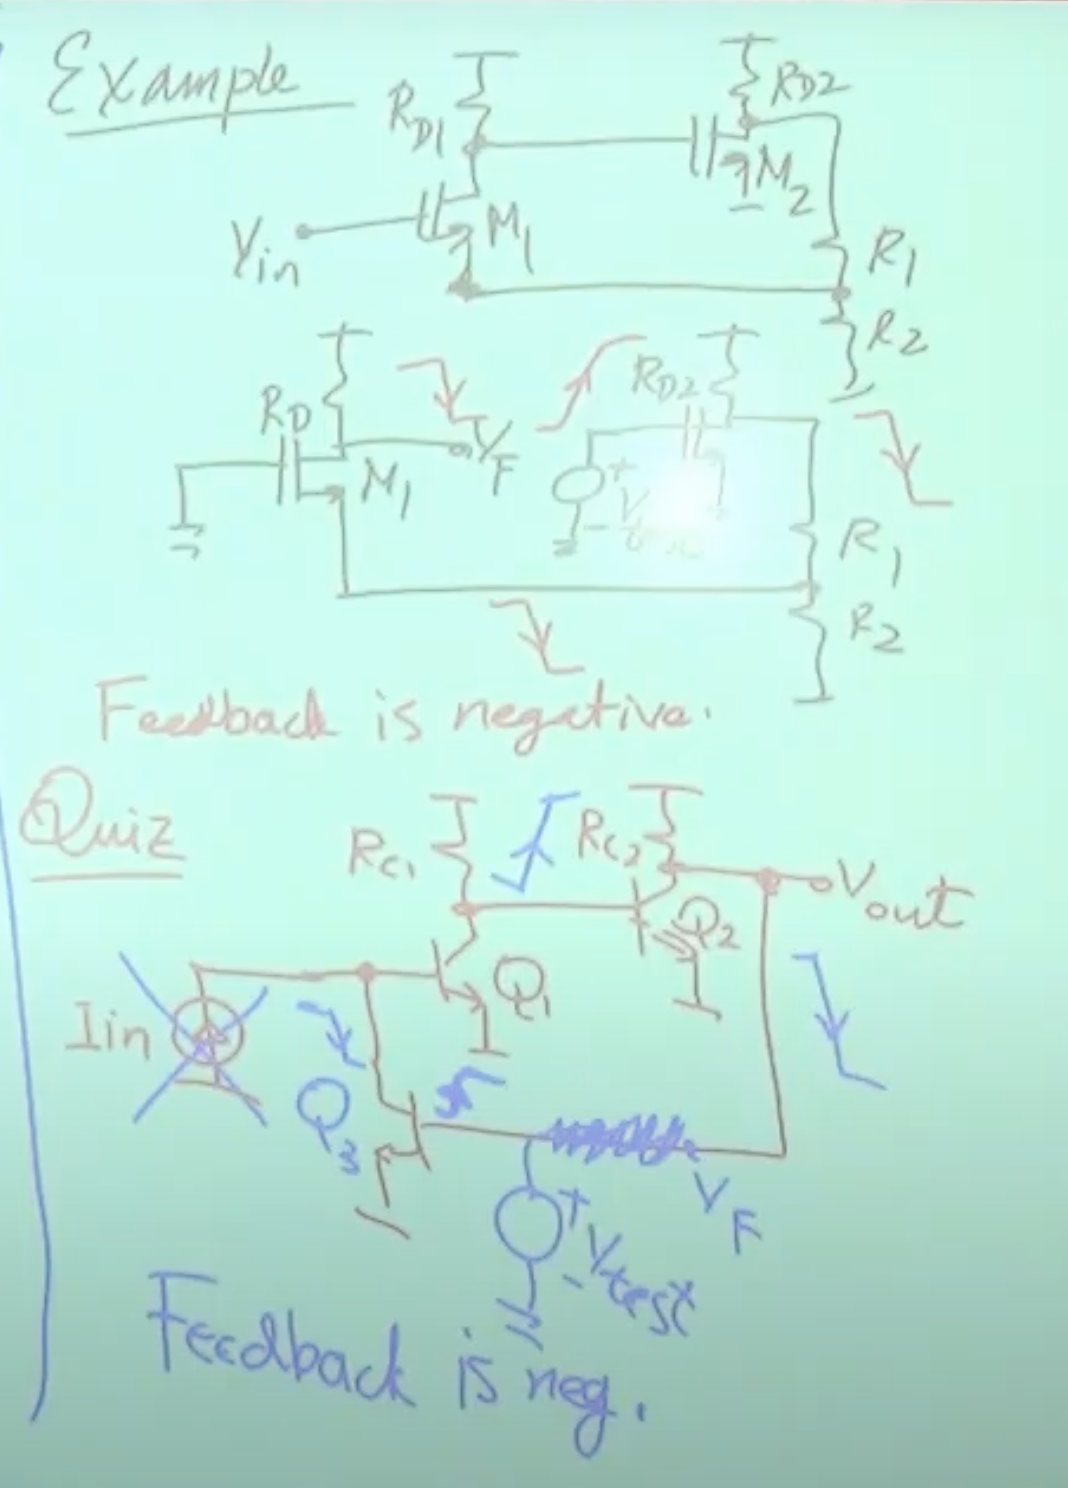 Example
RD1
RD2
M2
Vin
M1
R1
R2
RD
VF
RD2
M1
+
-
Vtest
R1
R2
Feedback is negative.
Quiz
RC1
RC2
Vout
Q2
Q1
Iin
Q3
VF
+
-
Vtest
Feedback is neg.